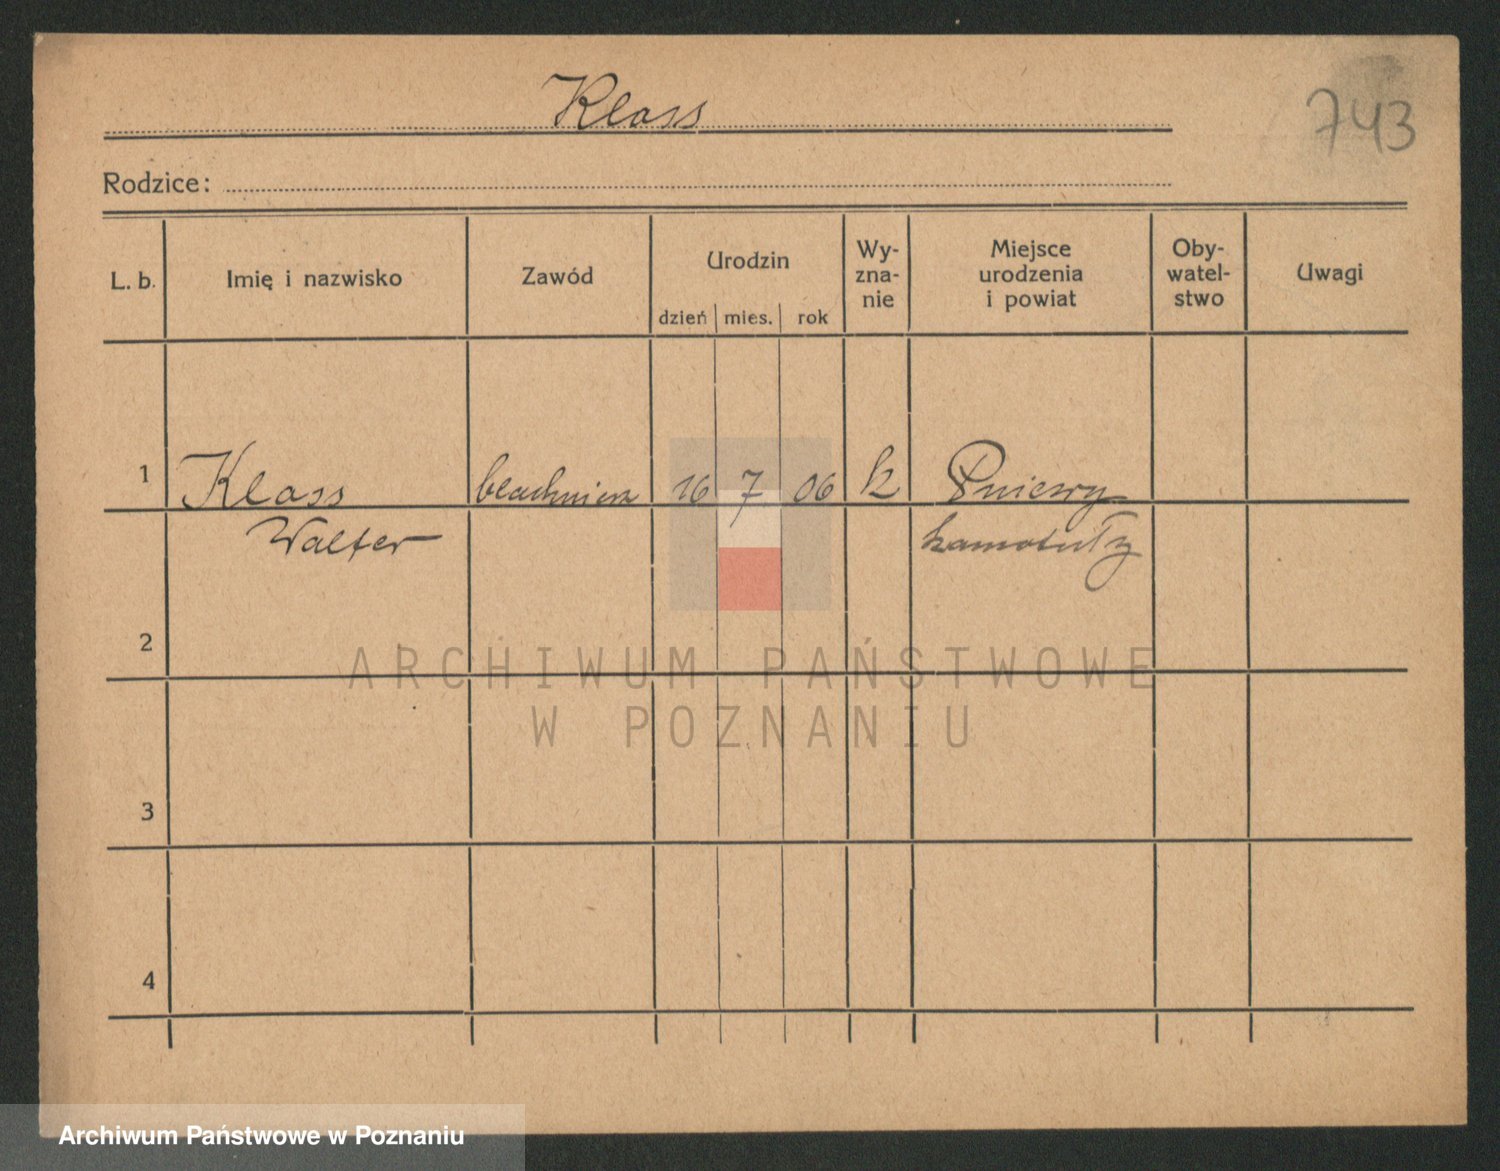 Klass
743
Rodzice:
L. b.
Imię i nazwisko
Zawód
Urodzin
dzień mies. rok
Wy-
zna-
nie
Miejsce
urodzenia
i powiat
Oby-
watel-
stwo
Uwagi
1 Klass blacharz 16 7 06 k Pniewy
Walter
2
3
4
ARCHIWUM PAŃSTWOWE
W POZNANIU
Archiwum Państwowe w Poznaniu